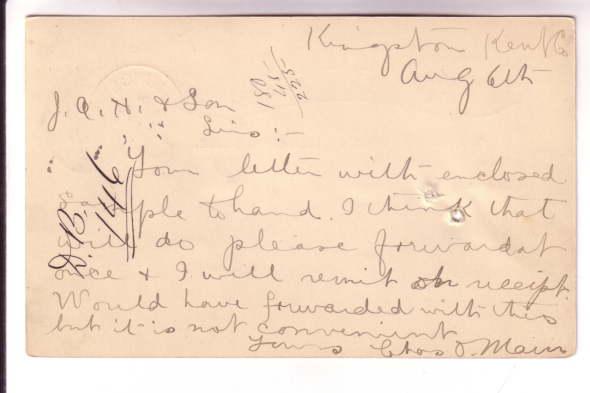 Kingston Kent Co
Aug 6th
150
75
225
J. A. H. & Son
Sirs :-
Your letter with enclosed
sample to hand. I think that
will do please forward at
once & I will remit on receipt.
Would have forwarded with this
but it is not convenient
Yours Chas D. Main
146